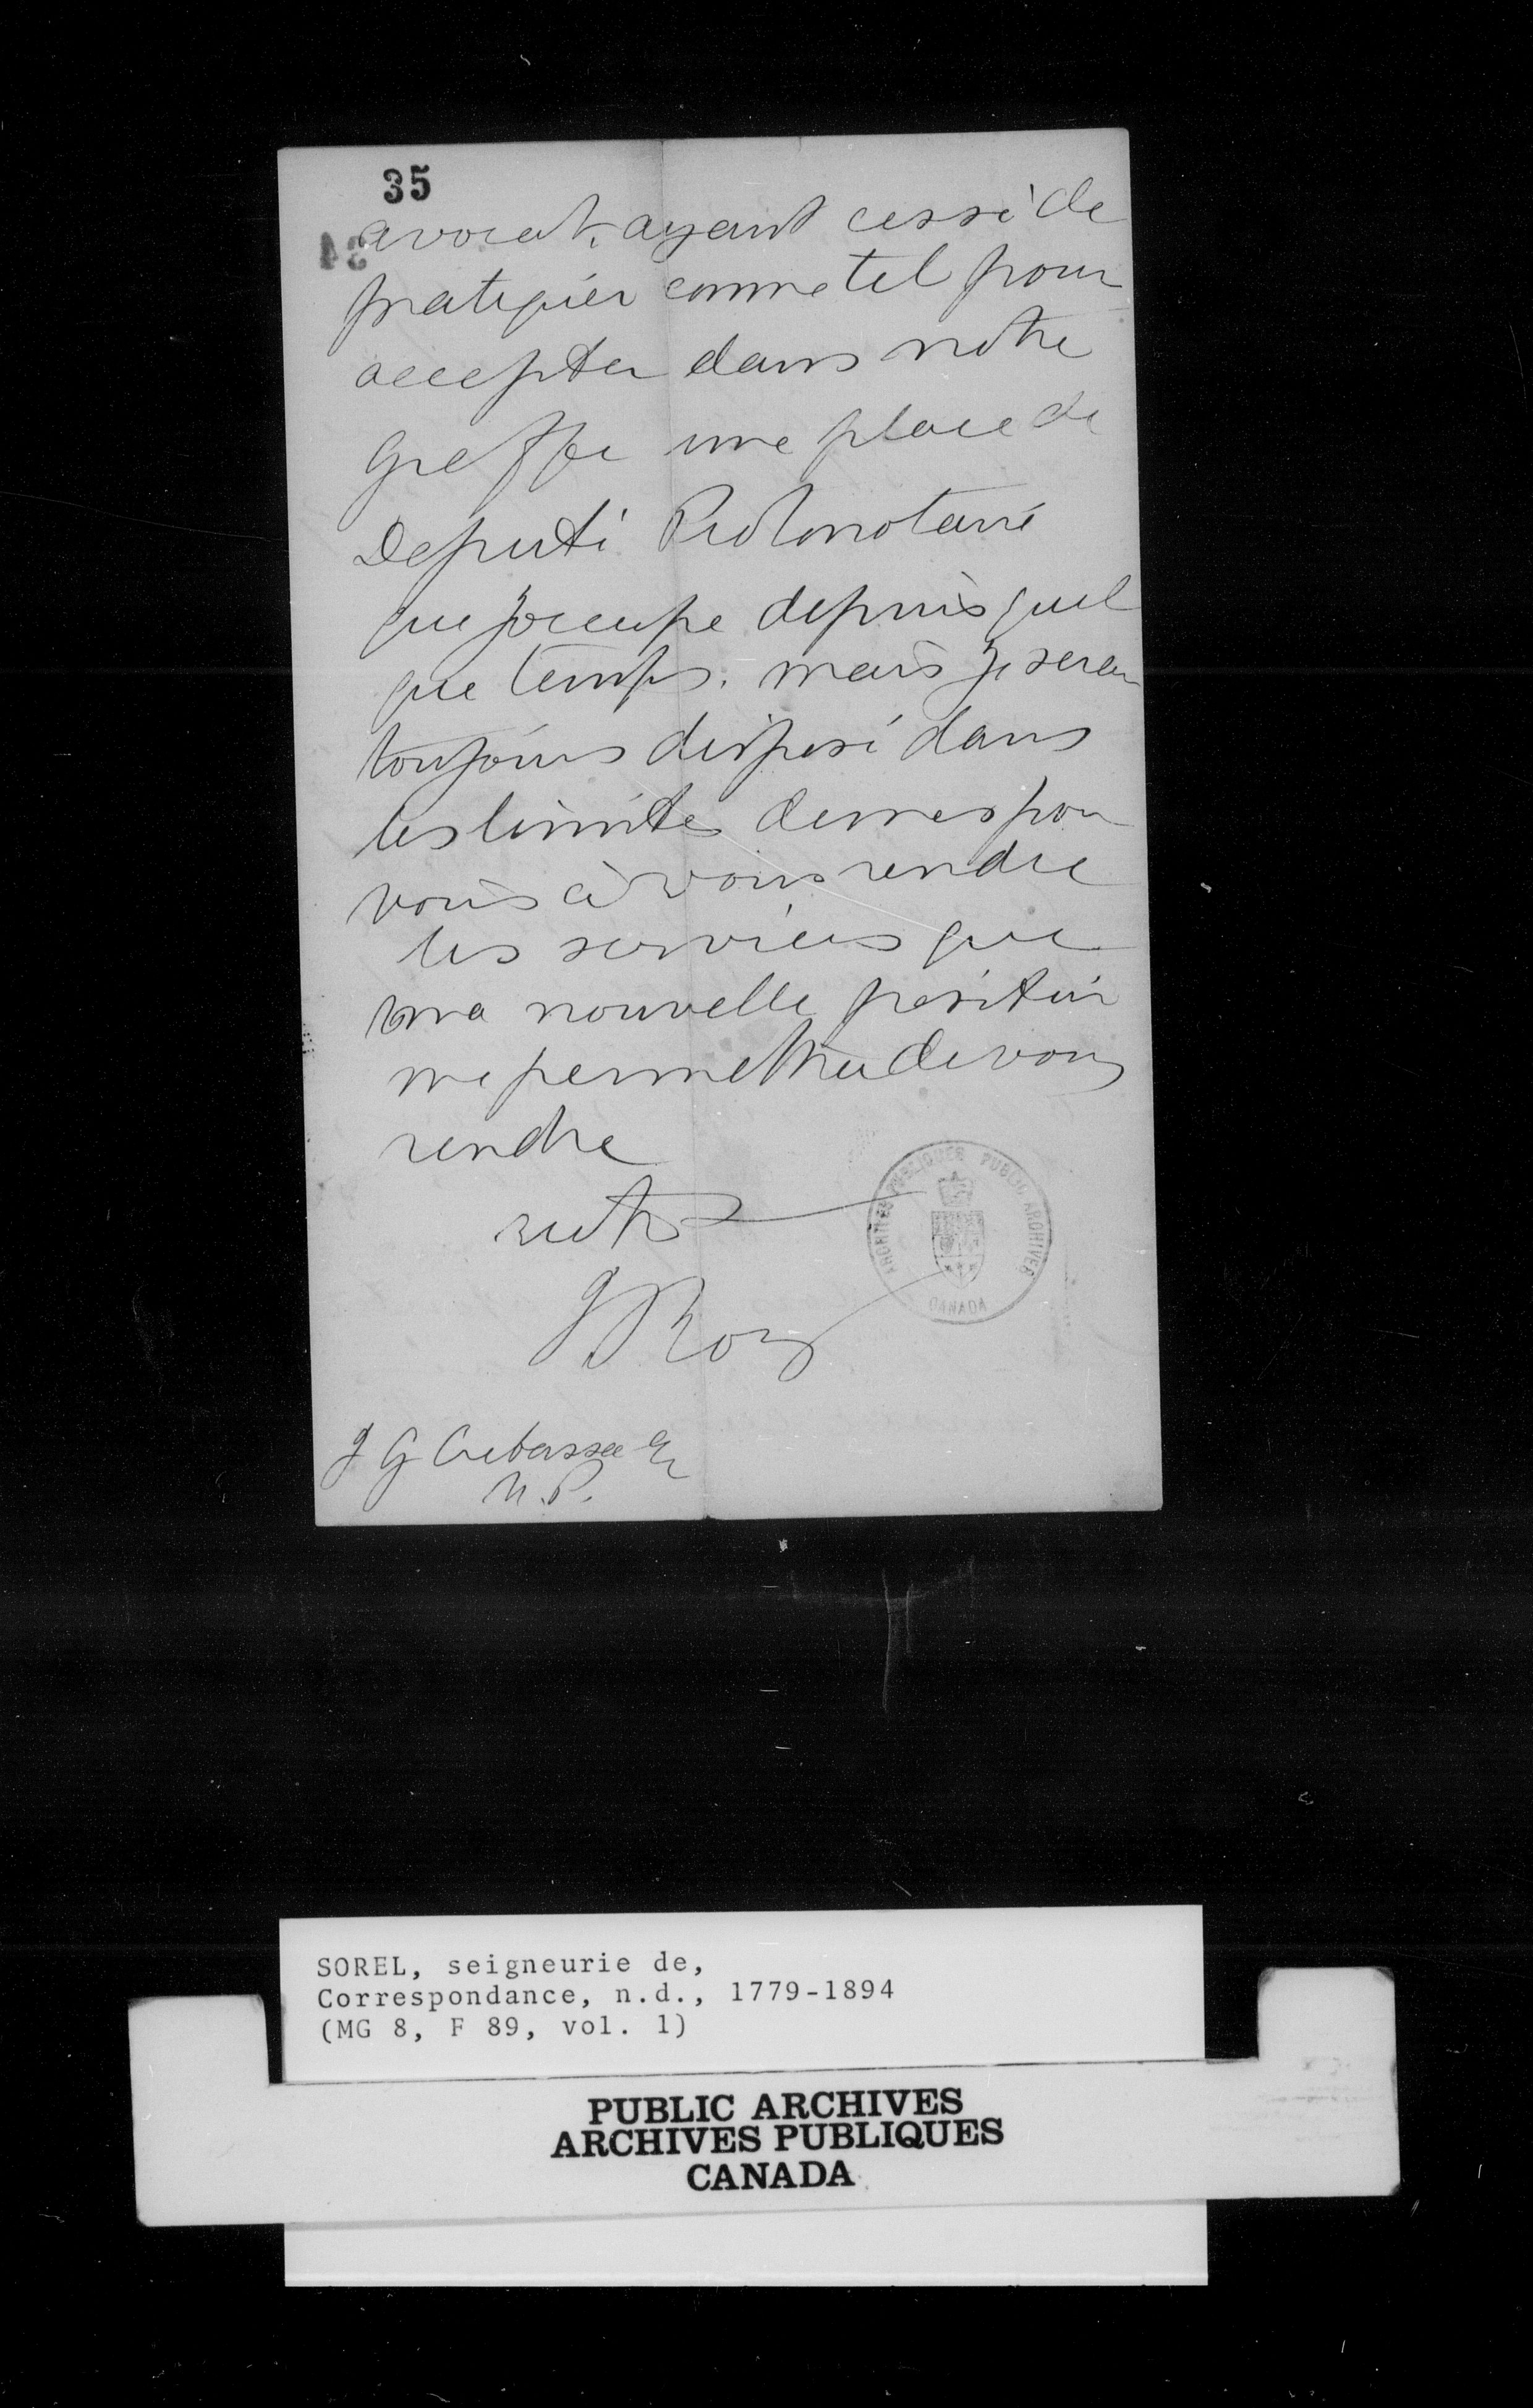 35
avocat, ayant cessé de
pratiquer comme tel pour
accepter dans notre
Greffe une place de
Deputé Protonotaire
que j'occupe depuis quel
que temps. mais je serai
toujours disposé dans
les limites de mes pou
voirs à vous rendre
les services que
ma nouvelle position
me permettra de vous
rendre
J Roy
J G Crebassa Er
N.P.
ARCHIVES PUBLIQUES PUBLIC ARCHIVES
CANADA
SOREL, seigneurie de,
Correspondance, n.d., 1779-1894
(MG 8, F 89, vol. 1)
PUBLIC ARCHIVES
ARCHIVES PUBLIQUES
CANADA